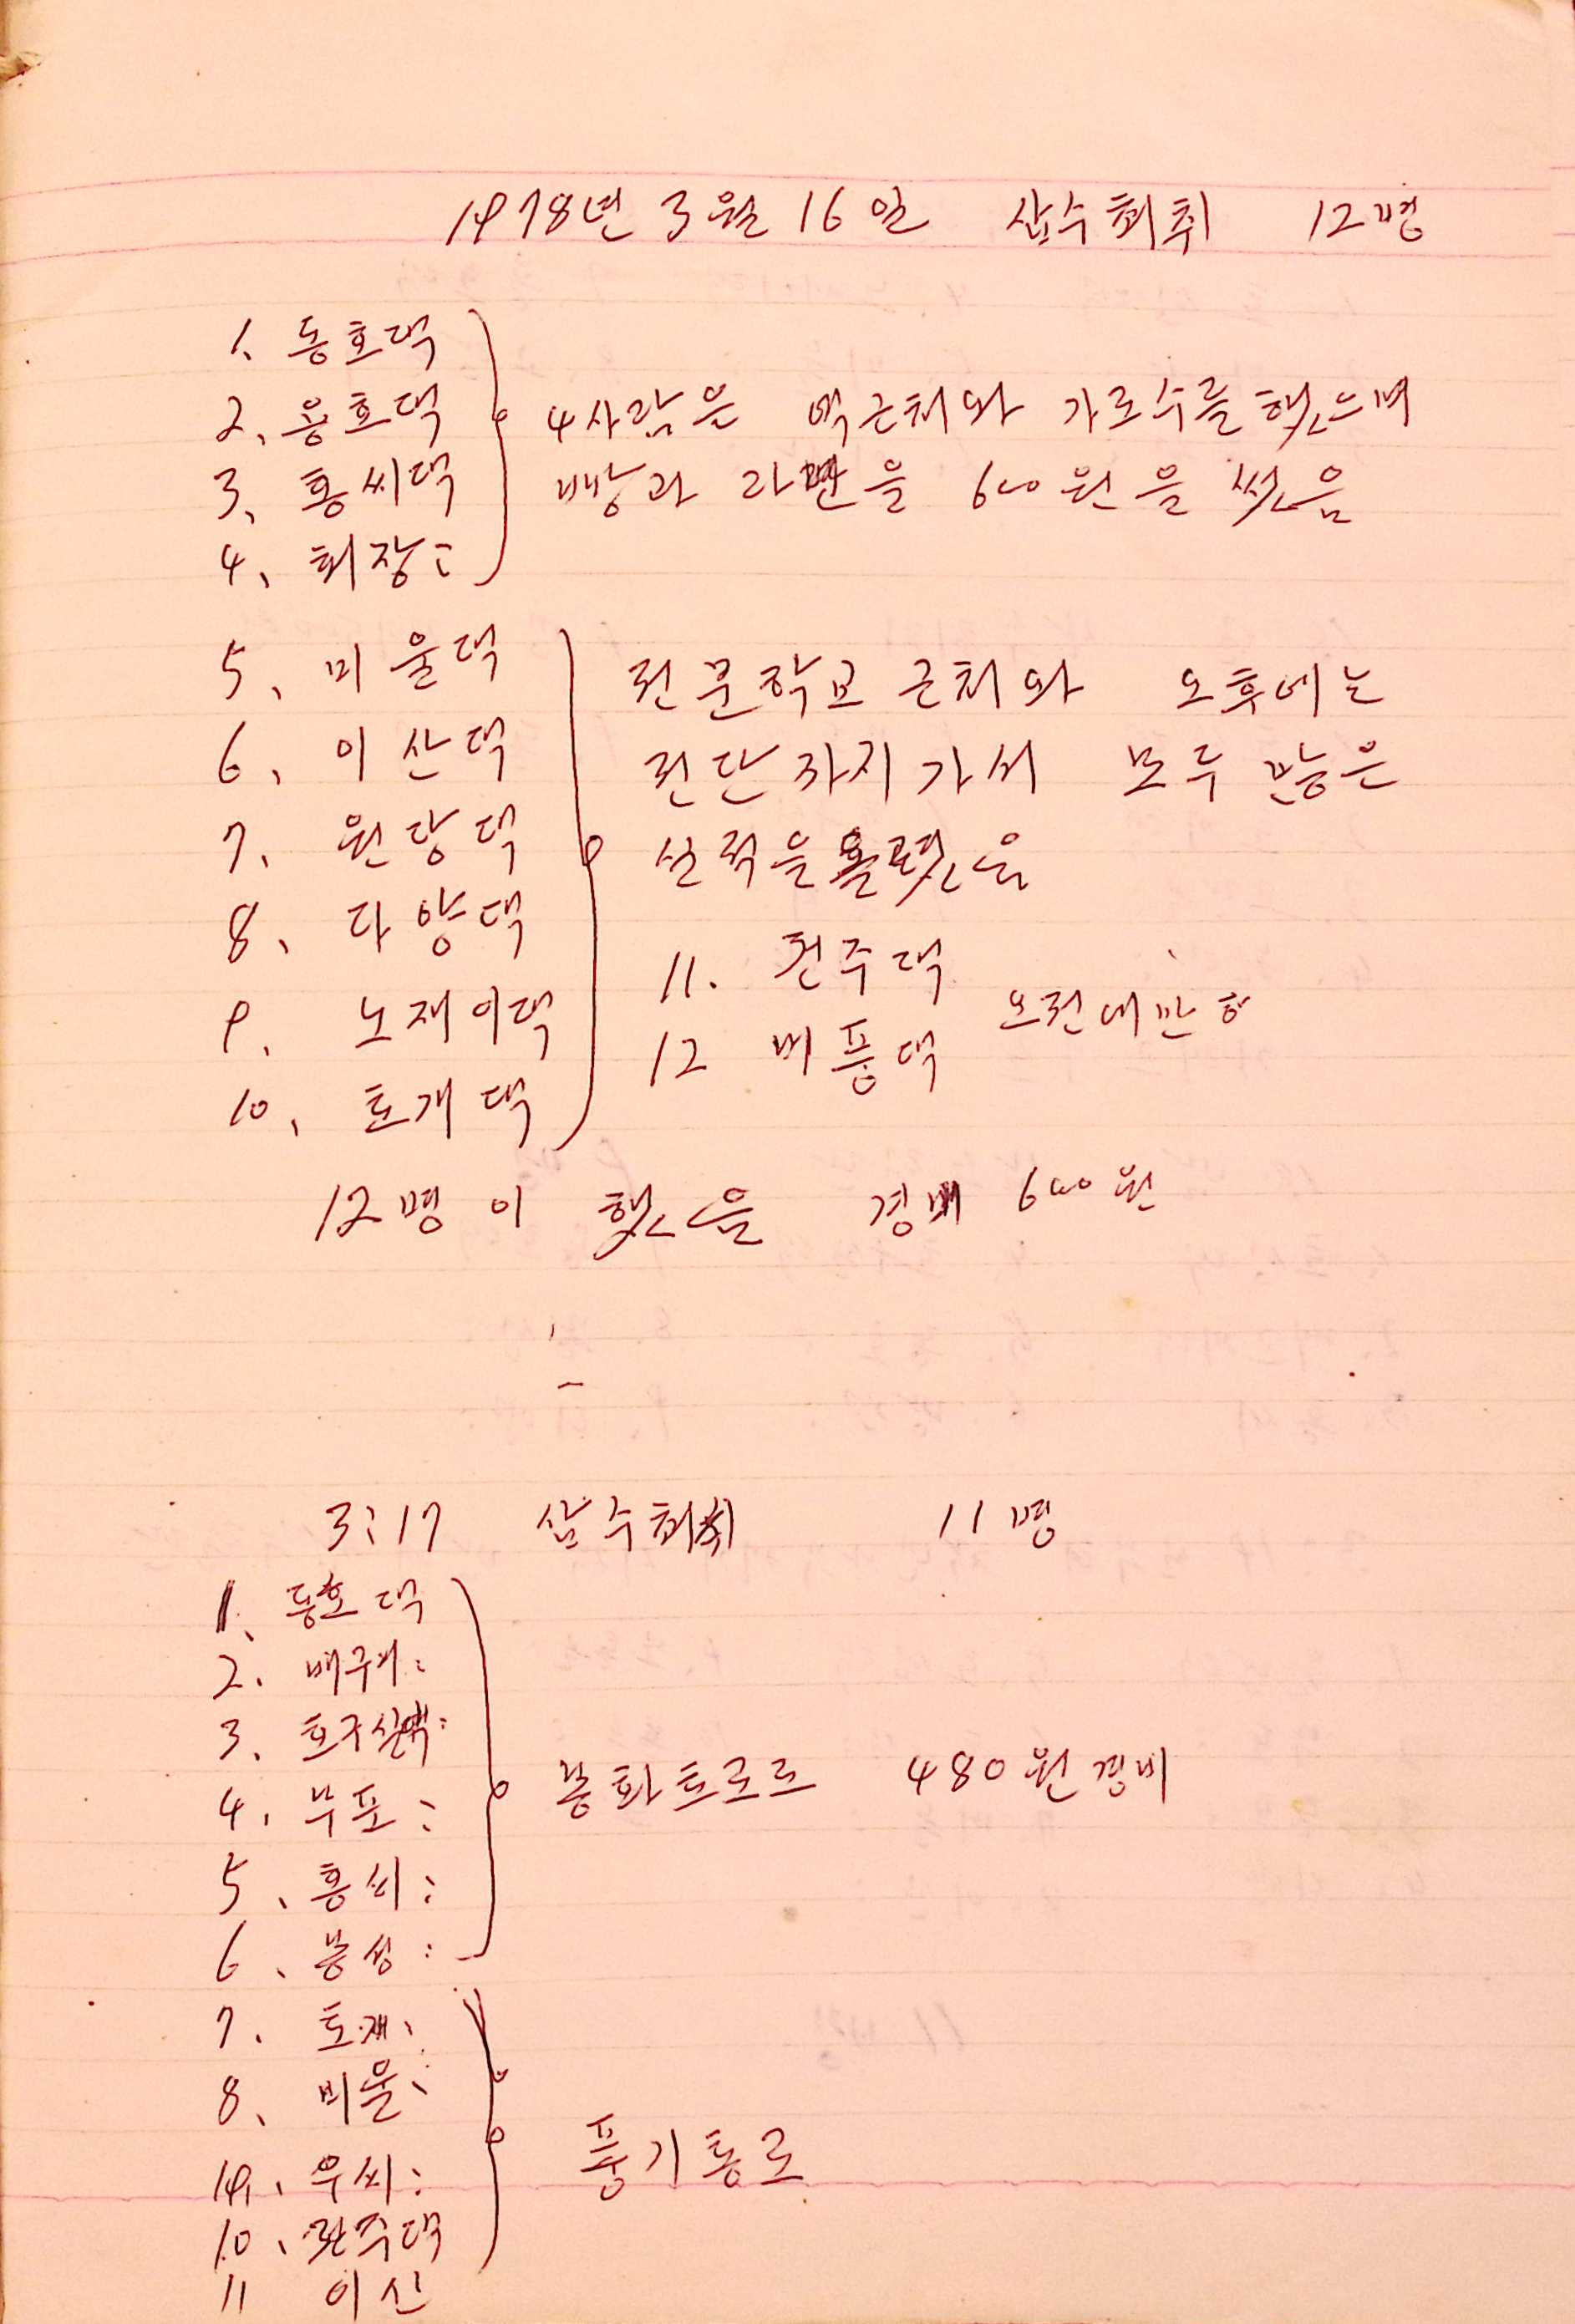 1978년 3월 16일 삽수최취 12명
1. 동호댁
2. 웅호댁
3. 홍씨댁
4. 회장:
4사람은 역근처와 가로수를 했으며
빵과 라면을 600원을 썼음
5. 미울댁
6. 이산댁
7. 원당댁
8. 다양댁
9. 노재이댁
10. 토개댁
전문학교 근처와 오후에는
전단까지 가서 모두 많은
실적을 올렸음
11. 전주댁
12 비풍댁
오전에만 함
12명이 했음 경비 600원
3:17 삽수최취 11명
1. 동호댁
2.
3.
4. 부포:
5. 홍씨:
6. 봉성:
봉화통로로 480원 경비
7. 토개:
8. 미울:
우씨:
10. 전주댁
11 이산
풍기통로